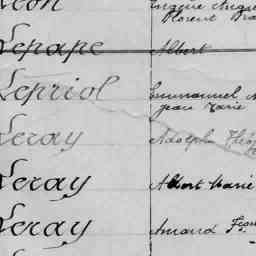 Florent
Lepape Albert
Lepriol Emmanuel
Jean Marie
Leray Adolphe
Leray Albert Marie
Leray Amand